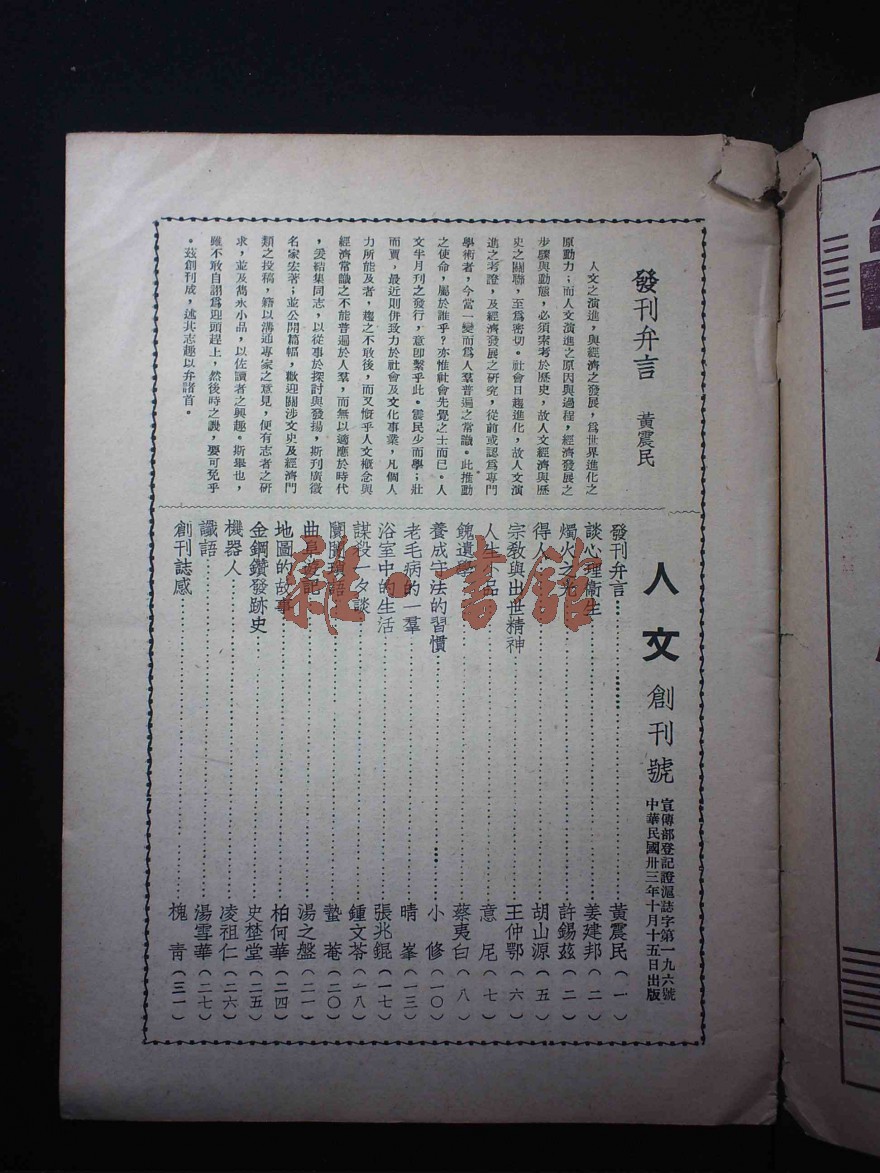 發刊弁言
黃震民
人文之演進，與經濟之發展，爲世界進化之
原動力；而人文演進之原因與過程，經濟發展之
步驟與動態，必須索考於歷史，故人文經濟與歷
史之關聯，至爲密切。社會日趨進化，故人文演
進之考證，及經濟發展之研究，從前或認爲專門
學術者，今當一變而爲人羣普遍之常識。此推動
之使命，屬於誰乎？亦惟社會先覺之士而已。人
文半月刊之發行，意卽繫乎此。震民少而學；壯
而賈，最近則併致力於社會及文化事業，凡個人
力所能及者，趨之不敢後，而又慨乎人文概念與
經濟常識之不能普遍於人羣，而無以適應於時代
，爰結集同志，以從事於探討與發揚，斯刊廣徵
名家宏著；並公開篇幅，歡迎關涉文史及經濟門
類之投稿，籍以溝通專家之意見，便有志者之研
求，並及雋永小品，以佐讀者之興趣。斯舉也，
雖不敢自詡爲迎頭趕上，然後時之譏，要可免乎
。茲創刊成，述其志趣以弁諸首。
人文 創刊號
宣傳部登記證滬誌字第一九六號
中華民國卅三年十月十五日出版
發刊弁言 黃震民（一）
談心理衞生 姜建邦（二）
燭火之光 許錫茲（二）
得人 胡山源（五）
宗敎與出世精神 王仲鄂（六）
人生 品 意尼（七）
餽遺 蔡夷白（八）
養成守法的習慣 小修（一〇）
老毛病的一羣 晴峯（一三）
浴室中的生活 張兆錕（一七）
謀殺一夕談 鍾文苓（一八）
語 蟄菴（二〇）
曲阜遊記 湯之盤（二一）
地圖的故事 柏何華（二四）
金鋼鑽發跡史 史埜堂（二五）
機器人 凌祖仁（二六）
讖語 湯雪華（二七）
創刊誌感 槐青（三一）
雜·書館